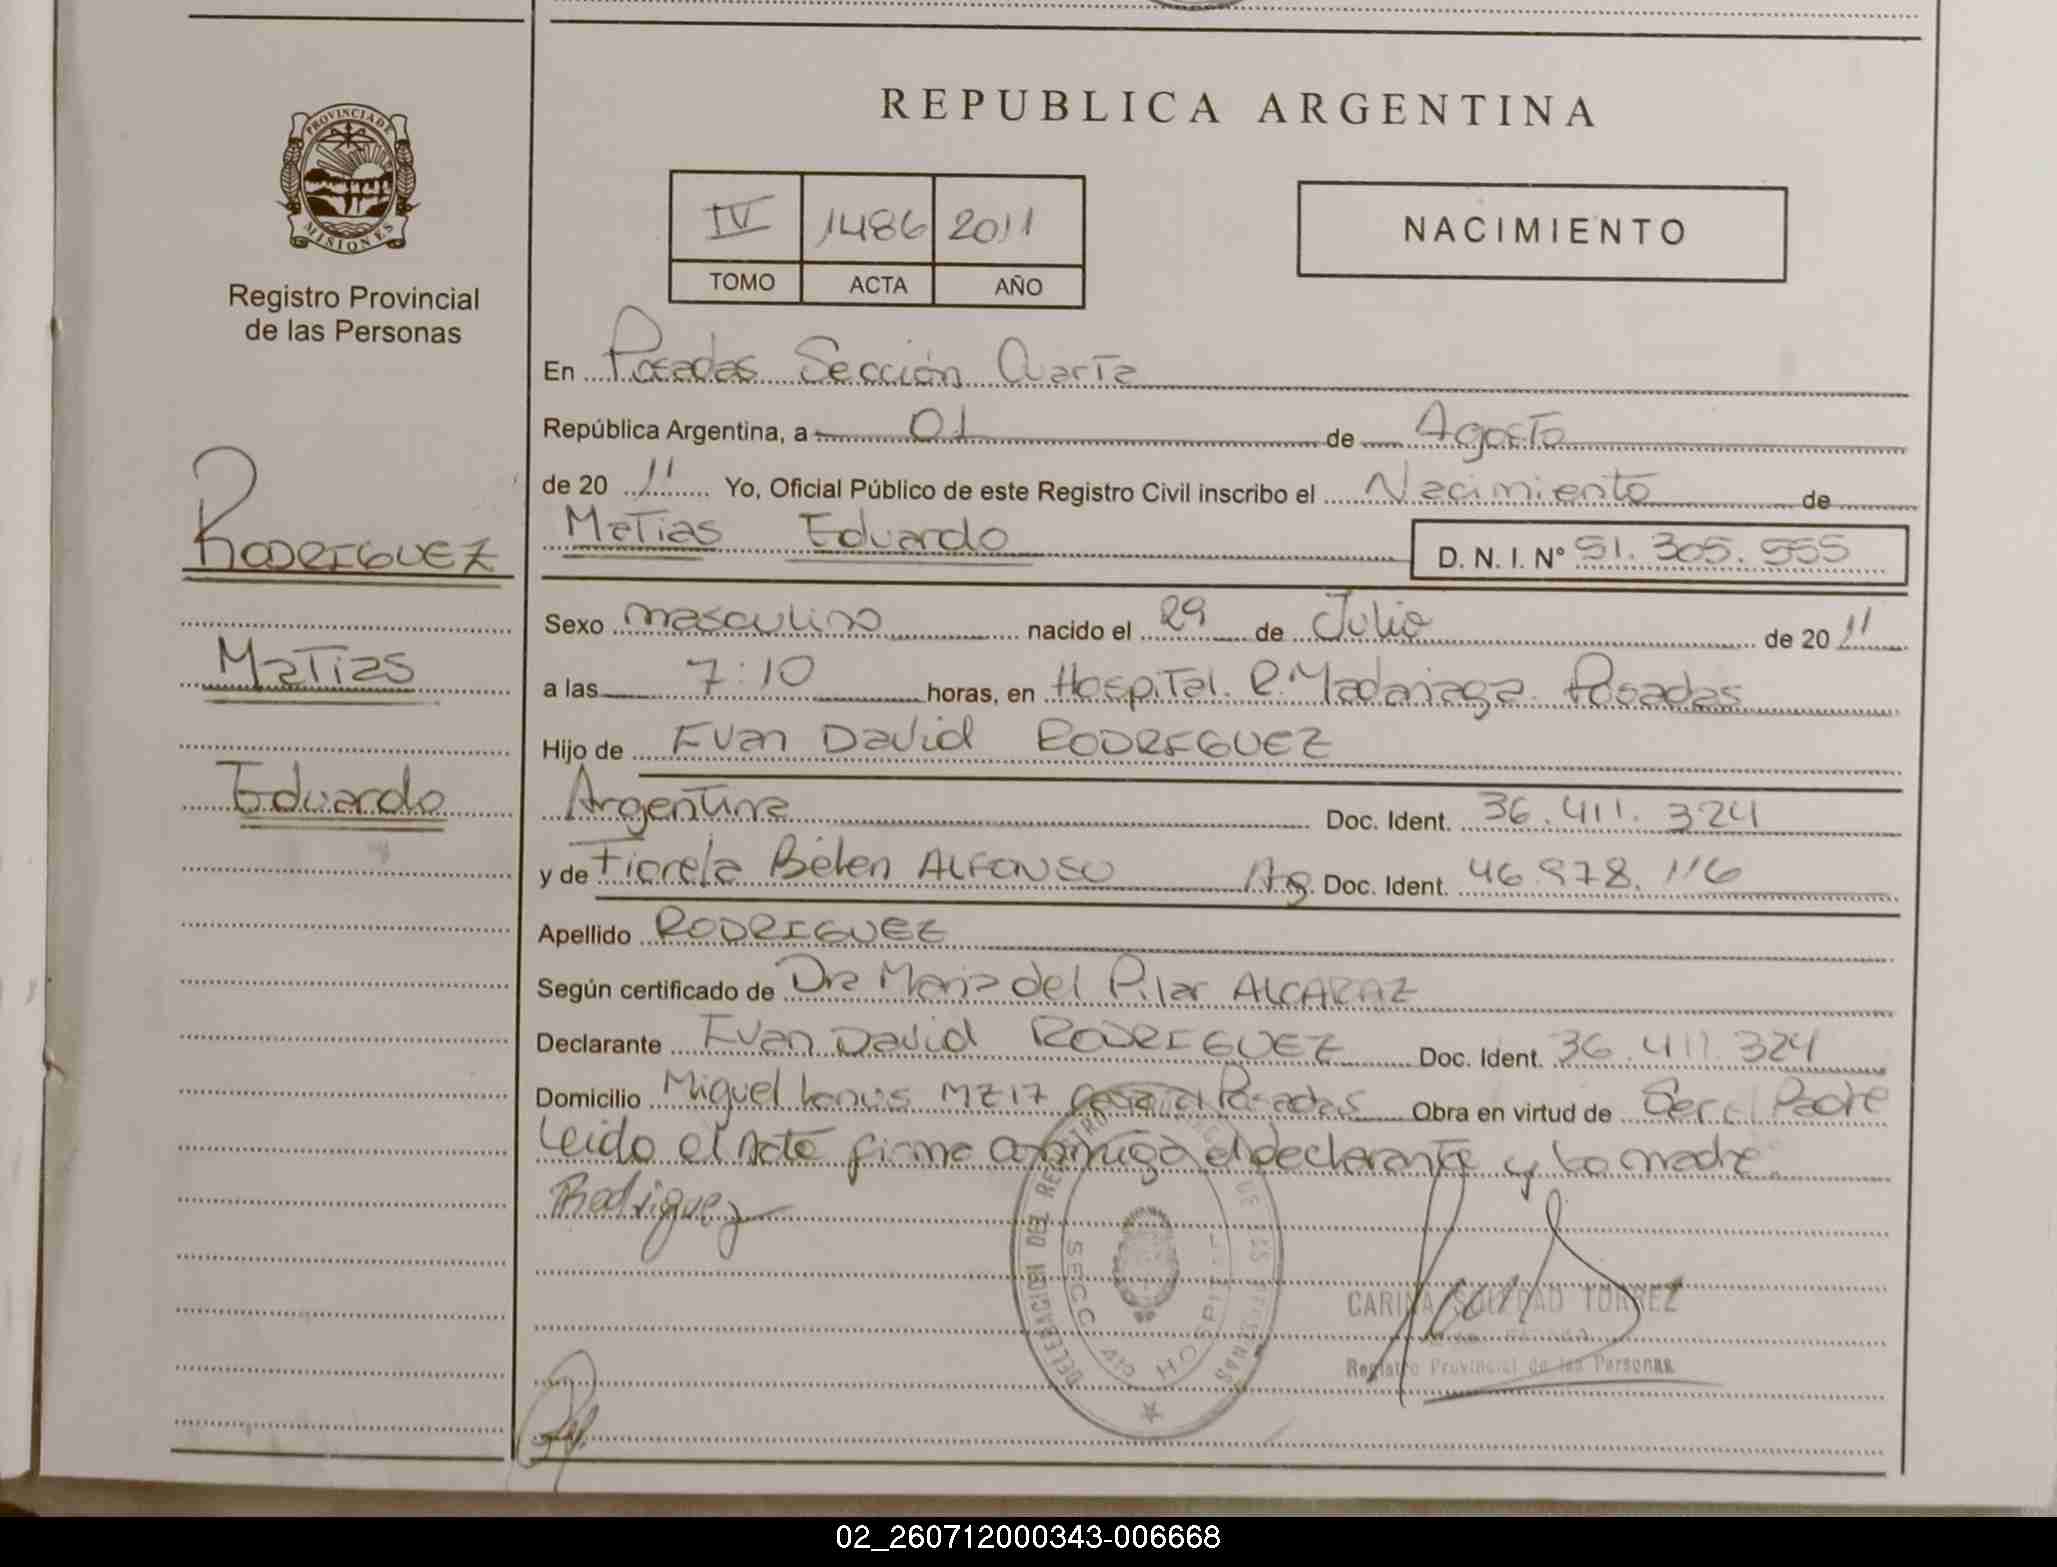 REPUBLICA ARGENTINA
PROVINCIA DE
MISIONES
Registro Provincial
de las Personas
IV 1486 2011
TOMO ACTA AÑO
NACIMIENTO
RODRIGUEZ
Matias
Eduardo
En Posadas Sección Cuarta
República Argentina, a 01 de Agosto
de 20 11 Yo, Oficial Público de este Registro Civil inscribo el Nacimiento de
Matias Eduardo D. N. I. N° 51.305.555
Sexo masculino nacido el 29 de Julio de 20 11
a las 7:10 horas, en Hospital. R. Madariaga. Posadas
Hijo de Evan David RODRIGUEZ
Argentina Doc. Ident. 36.411.324
y de Fiorela Belén ALFONSO Ag. Doc. Ident. 46.978.116
Apellido RODRIGUEZ
Según certificado de Dra Maria del Pilar ALCARAZ
Declarante Evan David RODRIGUEZ Doc. Ident. 36.411.324
Domicilio Miguel Lanus MZ 17 Posadas Obra en virtud de Ser el Padre
Leido el Acta firma conmigo el declarante y la madre.
Rodriguez
DELEGACION DEL REGISTRO DE LAS PERSONAS
SECC 4TA HOSPITAL
CARINA SOLEDAD TORREZ
Registro Provincial de las Personas
02_260712000343-006668